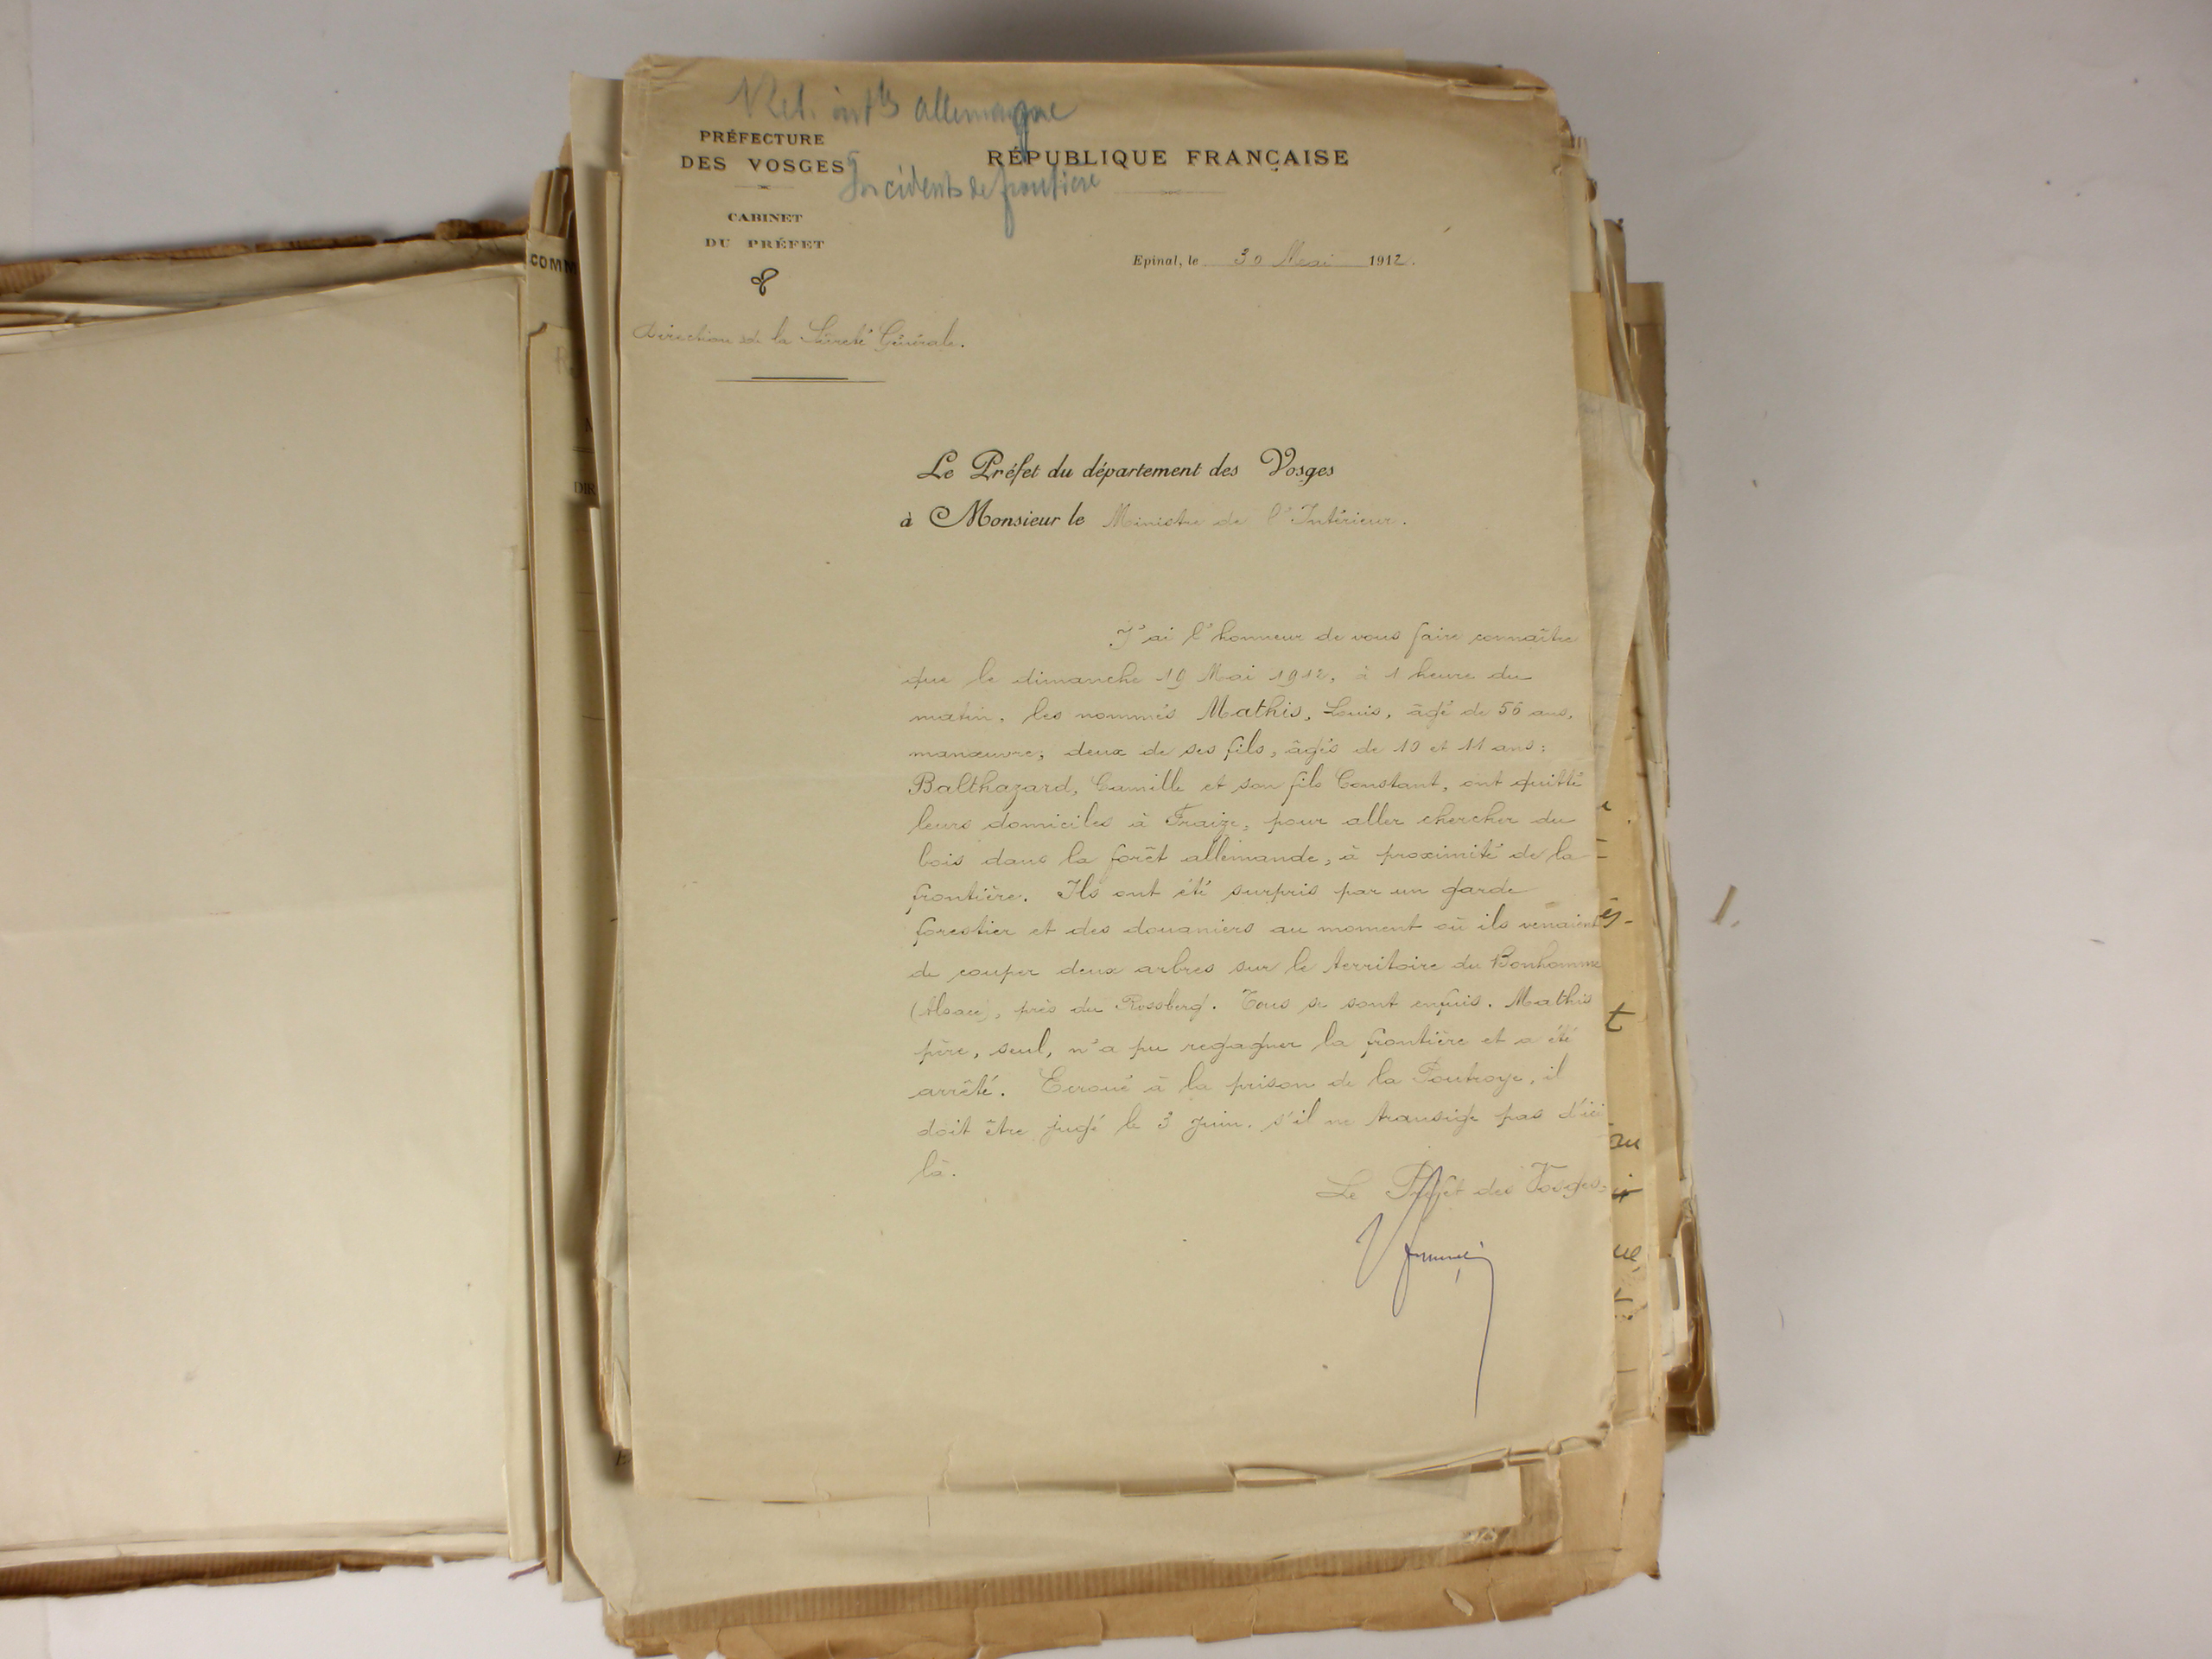 Rel. intles allemagne
Incidents de frontière
PRÉFECTURE
DES VOSGES
CABINET
DU PRÉFET
RÉPUBLIQUE FRANÇAISE
Epinal, le 30 Mai 1912.
Direction de la Sûreté Générale.
Le Préfet du département des Vosges
à Monsieur le Ministre de l'Intérieur.
J'ai l'honneur de vous faire connaître
que le dimanche 19 Mai 1912, à 1 heure du
matin, les nommés Mathis, Louis, âgé de 55 ans,
manœuvre; deux de ses fils, âgés de 10 et 11 ans;
Balthazard, Camille et son fils Constant, ont quitté
leurs domiciles à Fraize, pour aller chercher du
bois dans la forêt allemande, à proximité de la
frontière. Ils ont été surpris par un garde
forestier et des douaniers au moment où ils venaient
de couper deux arbres sur le territoire du Bonhomme
(Alsace), près du Rossberg. Tous se sont enfuis. Mathis
père, seul, n'a pu regagner la frontière et a été
arrêté. Ecroué à la prison de la Poutroye, il
doit être jugé le 3 Juin, s'il ne transige pas d'ici
là.
Le Préfet des Vosges,
COMM
DIR